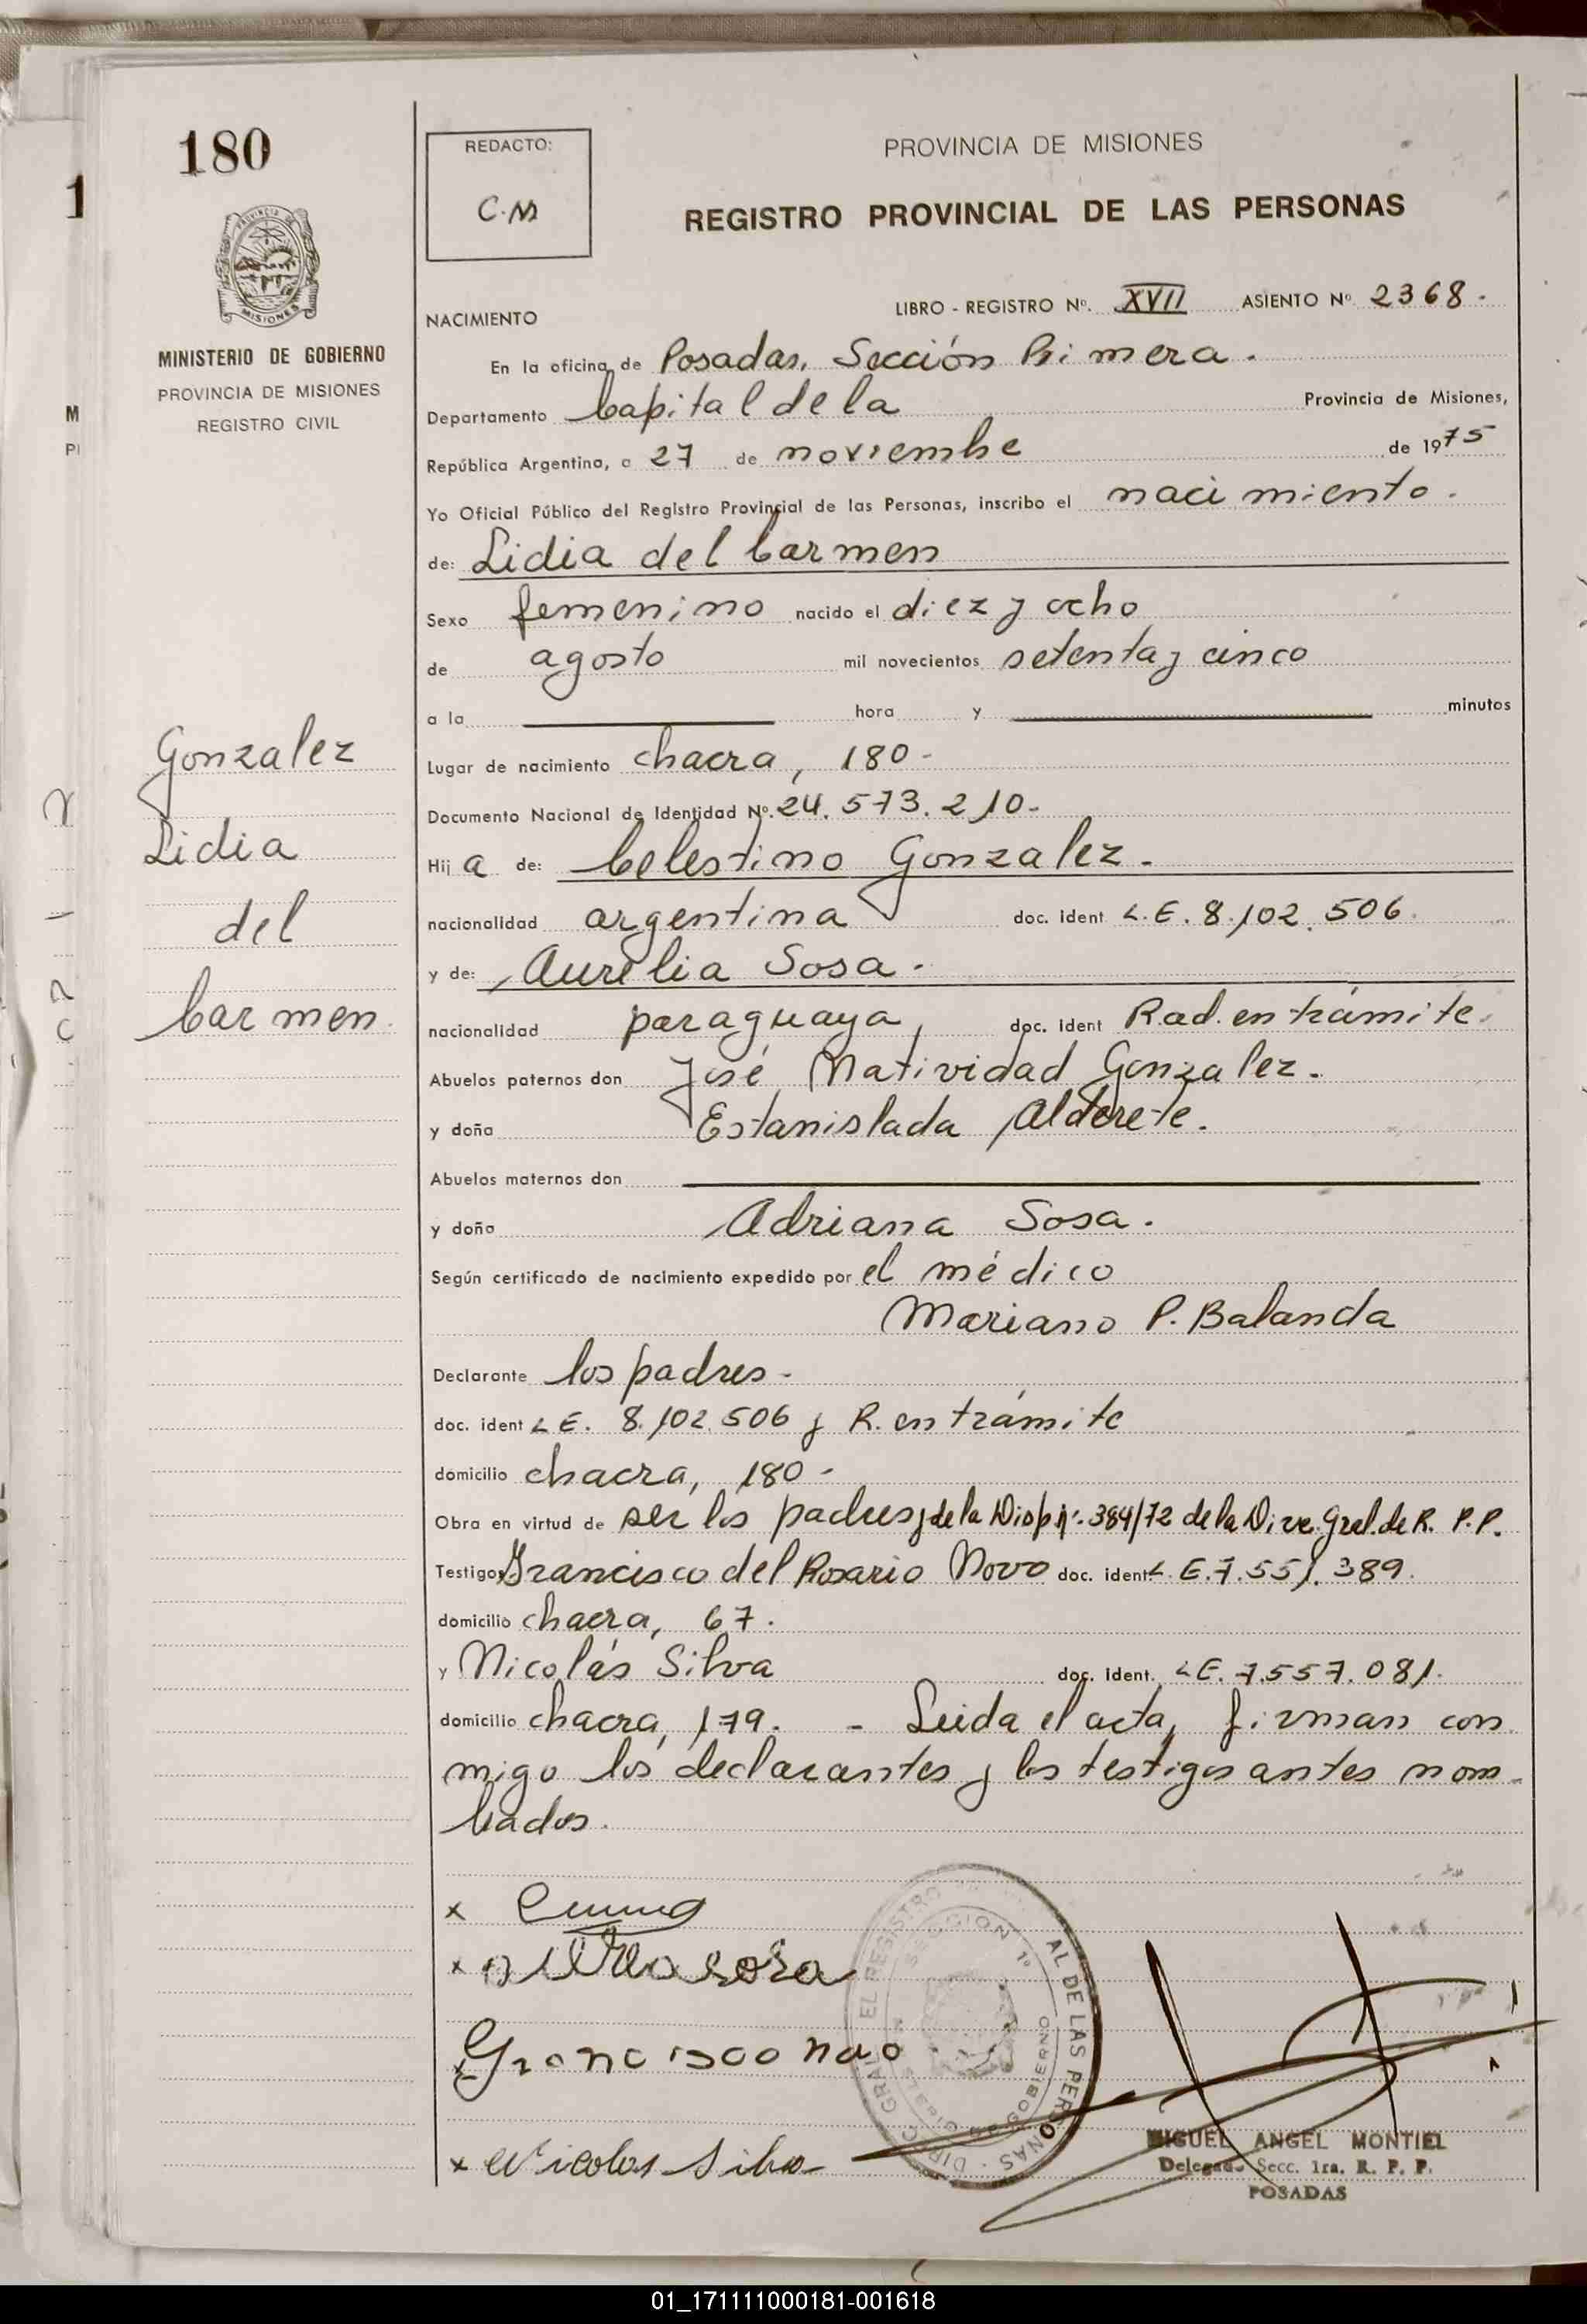 180
MINISTERIO DE GOBIERNO
PROVINCIA DE MISIONES
REGISTRO CIVIL
Gonzalez
Lidia
del
Carmen
REDACTO:
C.M
PROVINCIA DE MISIONES
REGISTRO PROVINCIAL DE LAS PERSONAS
NACIMIENTO
LIBRO - REGISTRO Nº. XVII ASIENTO Nº 2368.
En la oficina de Posadas, Sección Primera.
Departamento Capital de la Provincia de Misiones,
República Argentina, a 27 de noviembre de 1975
Yo Oficial Público del Registro Provincial de las Personas, inscribo el nacimiento.
de: Lidia del Carmen
Sexo femenino nacido el diez y ocho
de agosto mil novecientos setenta y cinco
a la hora y minutos
Lugar de nacimiento chacra, 180-
Documento Nacional de Identidad Nº. 24.573.210-
Hij a de: Celestino Gonzalez.
nacionalidad argentina doc. ident L.E. 8.102.506.
y de: Aurelia Sosa.
nacionalidad paraguaya, doc. ident Rad. en trámite.
Abuelos paternos don José Natividad Gonzalez.
y doña Estanislada Alderete.
Abuelos maternos don
y doña Adriana Sosa.
Según certificado de nacimiento expedido por el médico
Mariano P. Balanda
Declarante los padres-
doc. ident L E. 8.102.506 y R. en trámite
domicilio chacra, 180-
Obra en virtud de ser los padres y de la Disp. nº. 384/72 de la Direc. Gral. de R. P.P.
Testigos Francisco del Rosario Novo doc. ident L.E. 7.551.389.
domicilio chacra, 67.
y Nicolás Silva doc. ident. L E. 7.557.081.
domicilio chacra, 179. - Leida el acta, firman con
migo los declarantes y los testigos antes nom-
brados.
x
x sosa
x Francisco novo
x Nicolas Silva
SECCION 1º
MIGUEL ANGEL MONTIEL
Delegado Secc. 1ra. R. P. P.
POSADAS
01_171111000181-001618